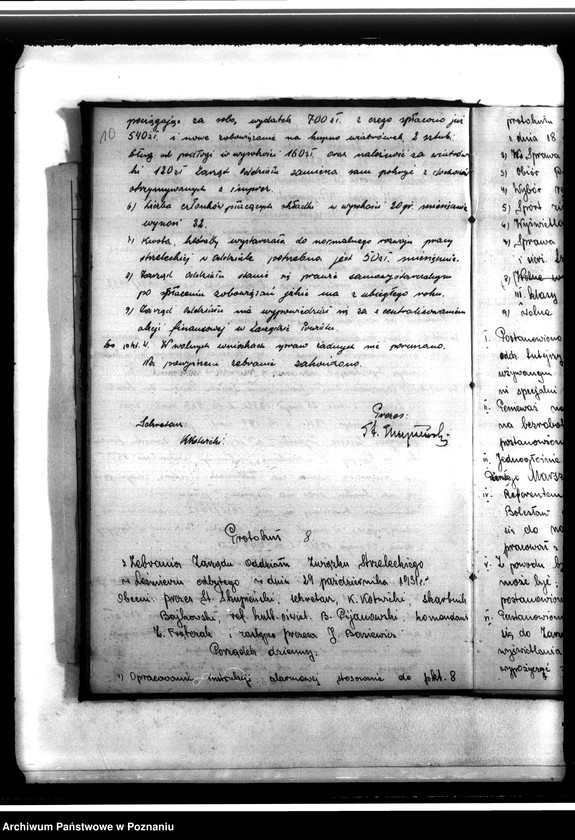 10
pociągając za sobą, wydatek 700 zł. z czego spłacono już
540 zł. i nowe zobowiązanie na kupno wiatrówek 2 sztuki.
Dług od podłogi w wysokości 160 zł. oraz należność za wiatrów-
ki 120 zł Zarząd Oddziału zamierza sam pokryć z dochodów
otrzymywanych z imprez.
6) Liczba członków płacących składki w wysokości 20 gr. miesięcznie
wynosi 22.
7) Kwota, któraby wystarczała do normalnego rozwoju pracy
strzeleckiej w oddziale potrzebna jest 50 zł. miesięcznie.
8) Zarząd Oddziału stanie się prawie samowystarczalnym
po spłaceniu zobowiązań jakie ma z ubiegłego roku.
9) Zarząd Oddziału ma wypowiedzieć się za z centralizowaniem
akcji finansowej w Zarządzie Powiatu.
Do pkt. 4. W wolnych wnioskach spraw żadnych nie poruszano.
Na powyższem zebranie zakończono.
Sekretarz: Prezes:
K. Kotwicki St. Skupieński
Protokuł 8
z Zebrania Zarządu oddziału Związku Strzeleckiego
w odbytego w dniu 29 października 1935 r.
Obecni: prezes St. Skupieński, sekretarz, K. Kotwicki, skarbnik
Bajkowski, ref. kult. oświat. B. Pijanowski, komendant
i zastępca prezesa J. Baniewicz
Porządek dzienny:
1) Opracowanie instrukcji alarmowej stosownie do pkt. 8
protokułu
z dnia 18
2) Sprawa
3) Obiór
4) Wybór
5) Sport
6) Wyświetla
7) Sprawa
i sieci
8) Wolne
III. klasy
9) Wolne
I. Postanowiono
oddz.
używanym
ni specjalni
II. Ponieważ na
na bezrobot
postanowion
III. Jednogłośnie
Marsz
IV. Referentem
Bolesław
się do
pracować
V. Z powodu
może być
postanowiono
VI. Postanowiono
się do Zarz
wyświetlania
wypożyczyć
Archiwum Państwowe w Poznaniu